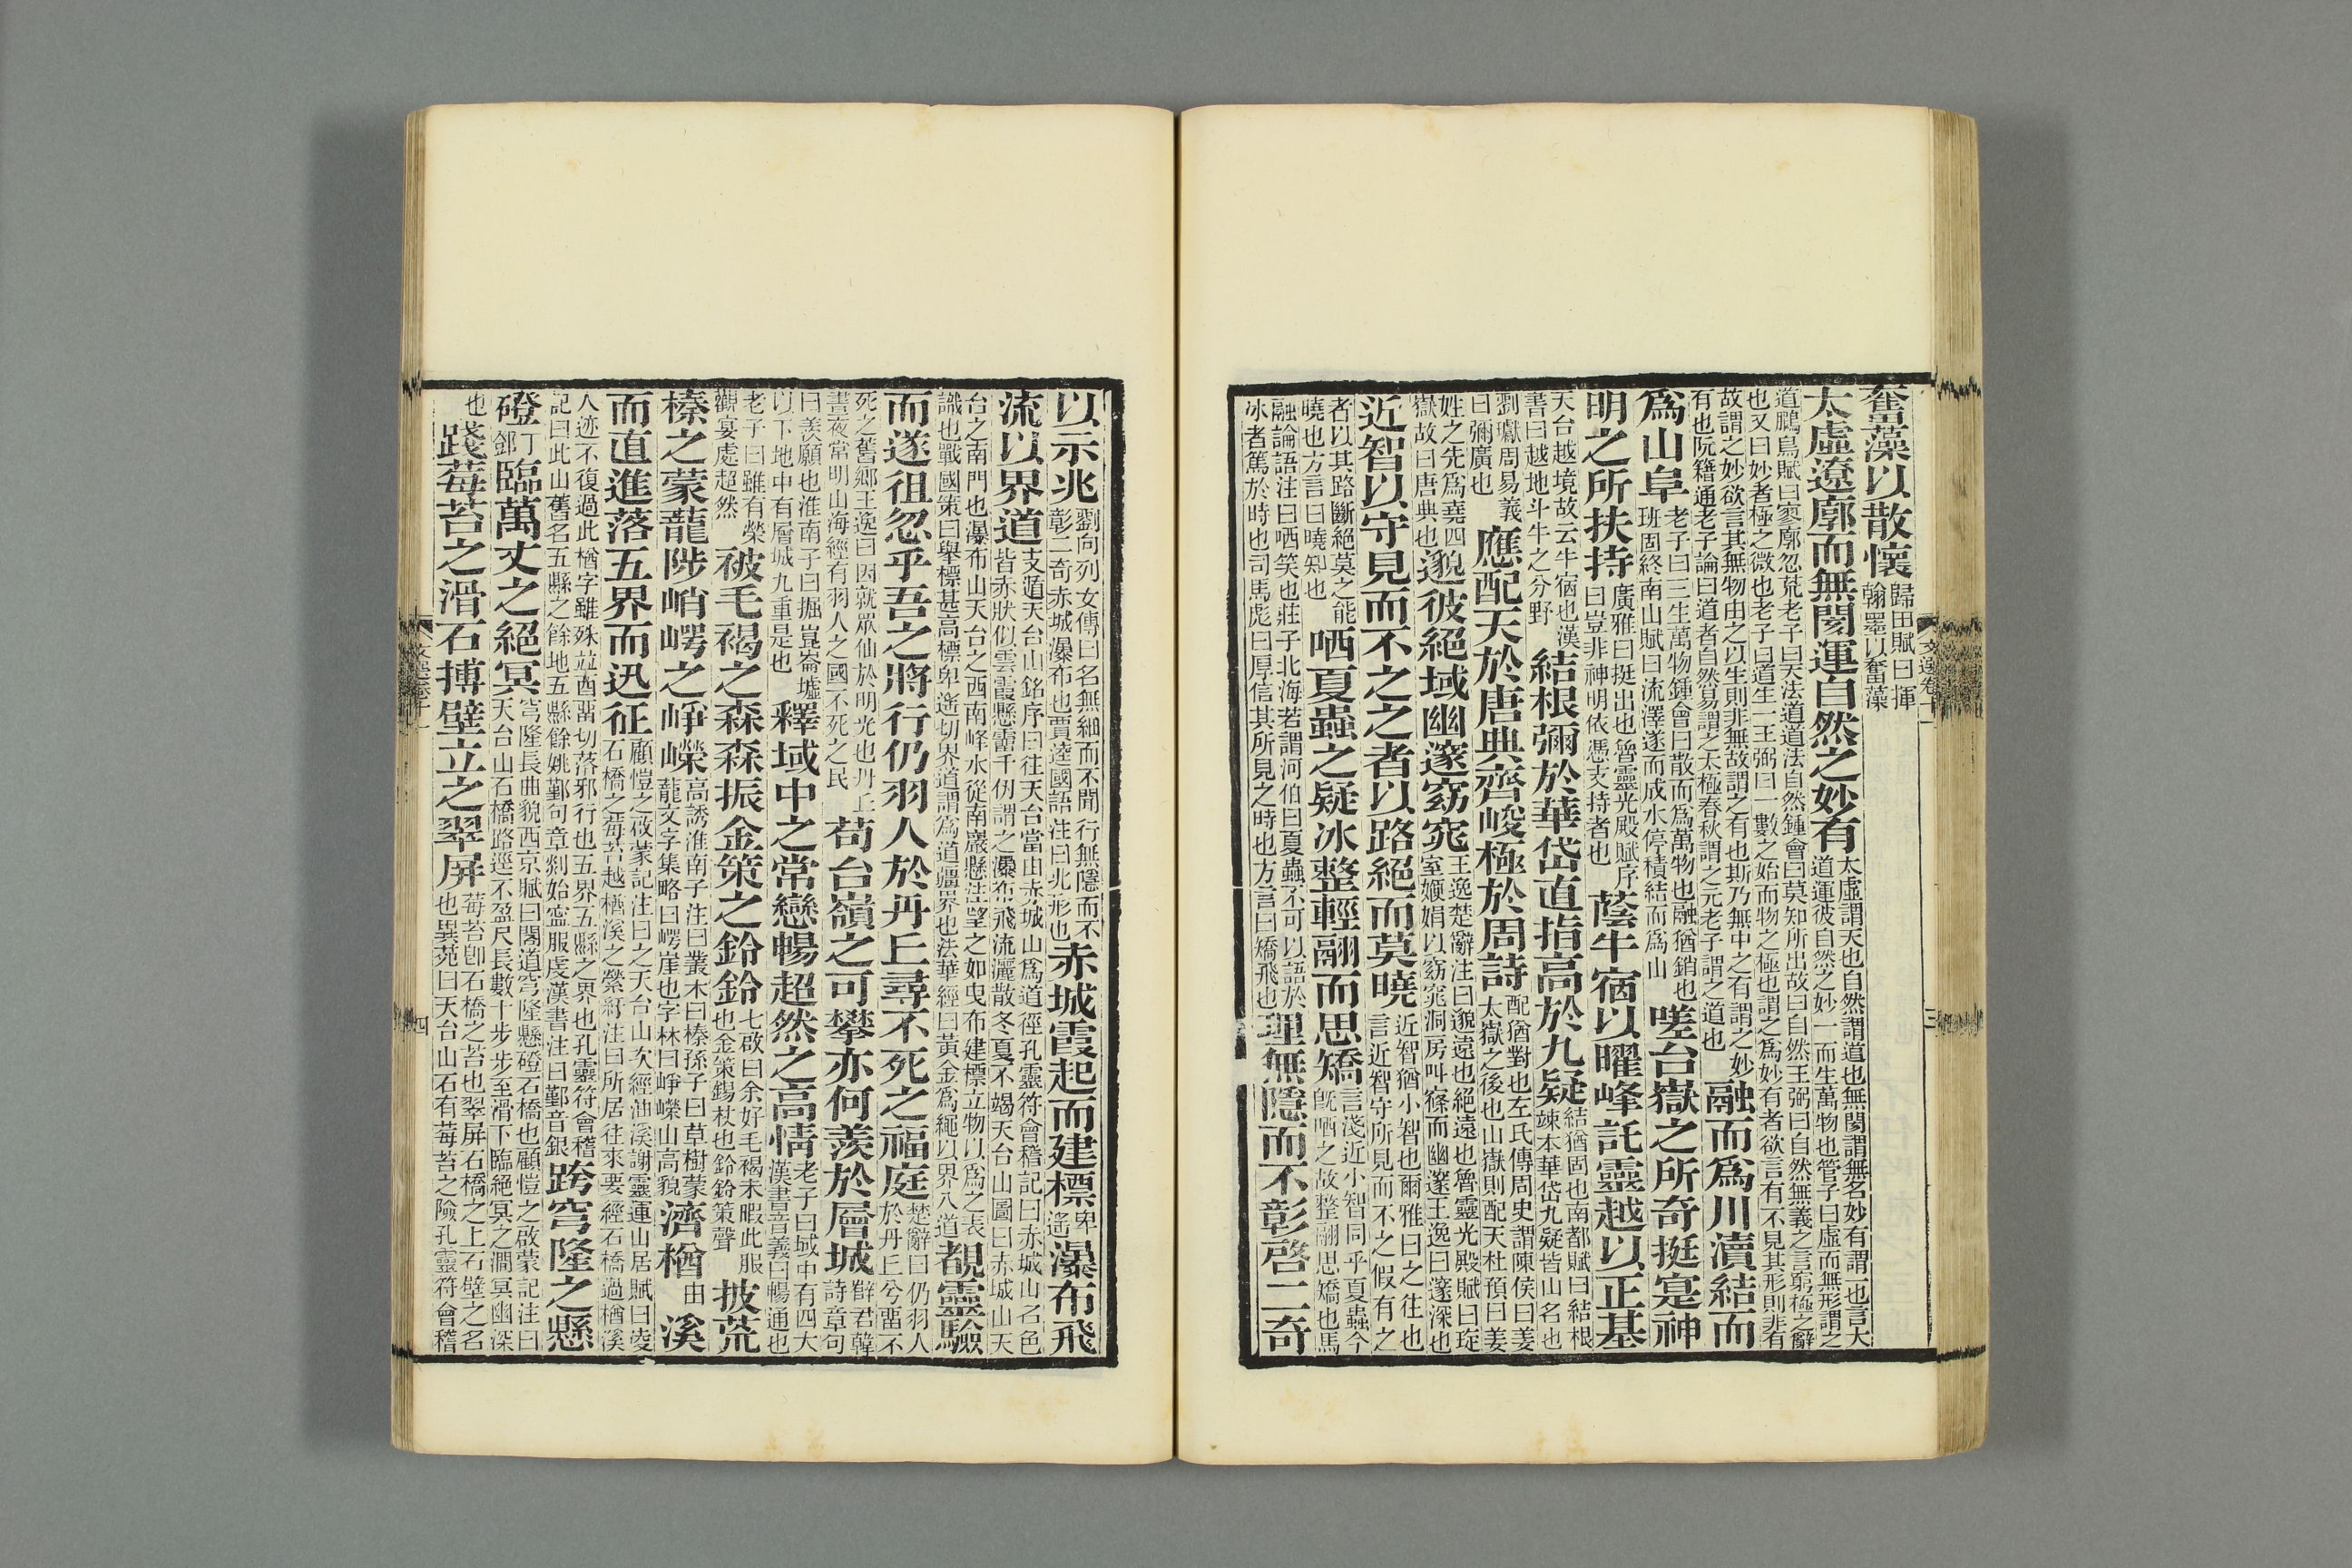 奮藻以散懷歸田賦曰揮翰墨以奮藻
太虛遼廓而無閡運自然之妙有太虛謂天也自然謂道也無閡謂無名妙有謂一也言大道運彼自然之妙一而生萬物也管子曰虛而無形謂之
道鵩鳥賦曰寥廓忽荒老子曰天法道道法自然鍾會曰莫知所出故曰自然王弼曰自然無義之言窮極之辭也又曰妙者極之微也老子曰道生一王弼曰一數之始而物之極也謂之爲妙有者欲言有不見其形則非有
故謂之妙欲言其無物由之以生則非無故謂之有也斯乃無中之有謂之妙有也阮籍通老子論曰道者自然易謂之太極春秋謂之元老子謂之道也融而爲川瀆結而
爲山阜老子曰三生萬物鍾會曰散而爲萬物也融猶銷也班固終南山賦曰流澤遂而成水停積結而爲山嗟台嶽之所奇挺寔神
明之所扶持廣雅曰挺出也魯靈光殿賦序曰豈非神明依憑支持者也蔭牛宿以曜峰託靈越以正基
天台越境故云牛宿也漢書曰越地斗牛之分野結根彌於華岱直指高於九疑結猶固也南都賦曰結根竦本華岱九疑皆山名也
劉瓛周易義曰彌廣也應配天於唐典齊峻極於周詩配猶對也左氏傳周史謂陳侯曰姜太嶽之後也山嶽則配天杜預曰姜
姓之先爲堯四嶽故曰唐典也邈彼絕域幽邃窈窕王逸楚辭注曰邈遠也絕遠也魯靈光殿賦曰琁室㛹娟以窈窕洞房叫窱而幽邃王逸曰邃深也
近智以守見而不之之者以路絕而莫曉近智猶小智也爾雅曰之往也言近智守所見而不之假有之
者以其路斷絕莫之能曉也方言曰曉知也哂夏蟲之疑冰整輕翮而思矯言淺近小智同乎夏蟲今旣哂之故整翮思矯也馬
融論語注曰哂笑也莊子北海若謂河伯曰夏蟲不可以語於冰者篤於時也司馬彪曰厚信其所見之時也方言曰矯飛也理無隱而不彰啓二奇
文選卷十一
三
以示兆劉向列女傳曰名無細而不聞行無隱而不彰二奇赤城瀑布也賈逵國語注曰兆形也赤城霞起而建標卑遙瀑布飛
流以界道支遁天台山銘序曰往天台當由赤城山爲道徑孔靈符會稽記曰赤城山名色皆赤狀似雲霞懸霤千仞謂之瀑布飛流灑散冬夏不竭天台山圖曰赤城山天
台之南門也瀑布山天台之西南峰水從南巖懸注望之如曳布建標立物以爲之表識也戰國策曰舉標甚高標卑遙切界道謂爲道疆界也法華經曰黃金爲繩以界八道覩靈驗
而遂徂忽乎吾之將行仍羽人於丹丘尋不死之福庭楚辭曰仍羽人於丹丘兮畱不
死之舊鄉王逸曰因就眾仙於明光也丹丘晝夜常明山海經有羽人之國不死之民苟台嶺之可攀亦何羨於層城薜君韓詩章句
曰羨願也淮南子曰掘崑崙墟以下地中有層城九重是也釋域中之常戀暢超然之高情老子曰域中有四大漢書音義曰暢通也
老子曰雖有榮觀宴處超然被毛褐之森森振金策之鈴鈴七啟曰余好毛褐未暇此服也金策錫杖也鈴鈴策聲披荒
榛之蒙蘢陟峭崿之崢嶸高誘淮南子注曰叢木曰榛孫子曰草樹蒙蘢文字集略曰崿崖也字林曰崢嶸山高貌濟楢由溪
而直進落五界而迅征顧愷之啟蒙記注曰之天台山次經油溪謝靈運山居賦曰凌石橋之莓苔越楢溪之縈紆注曰所居往來要經石橋過楢溪
人迹不復過此楢字雖殊竝酉畱切落邪行也五界五縣之界也孔靈符會稽記曰此山舊名五縣之餘地五縣餘姚鄞句章剡始寧服虔漢書注曰鄞音銀跨穹隆之懸
磴丁鄧臨萬丈之絕冥穹隆長曲貌西京賦曰閣道穹隆懸磴石橋也顧愷之啟蒙記注曰天台山石橋路逕不盈尺長數十步步至滑下臨絕冥之澗冥幽深
也踐莓苔之滑石搏壁立之翠屏莓苔卽石橋之苔也翠屏石橋之上石壁之名也異苑曰天台山石有莓苔之險孔靈符會稽
文選卷十一
四